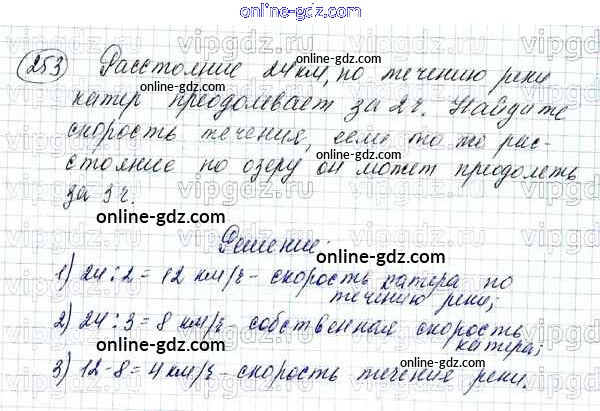 online-gdz.com
253 Расстояние 24 км, по течению реки
катер преодолевает за 2 ч. Найдите
скорость течения, если то же рас-
стояние по озеру он может преодолеть
за 3 ч.
Решение:
1) 24 : 2 = 12 км/ч - скорость катера по
течению реки;
2) 24 : 3 = 8 км/ч собственная скорость
катера;
3) 12 - 8 = 4 км/ч - скорость течения реки.
online-gdz.com
online-gdz.com
online-gdz.com
online-gdz.com
online-gdz.com
online-gdz.com
online-gdz.com
online-gdz.com